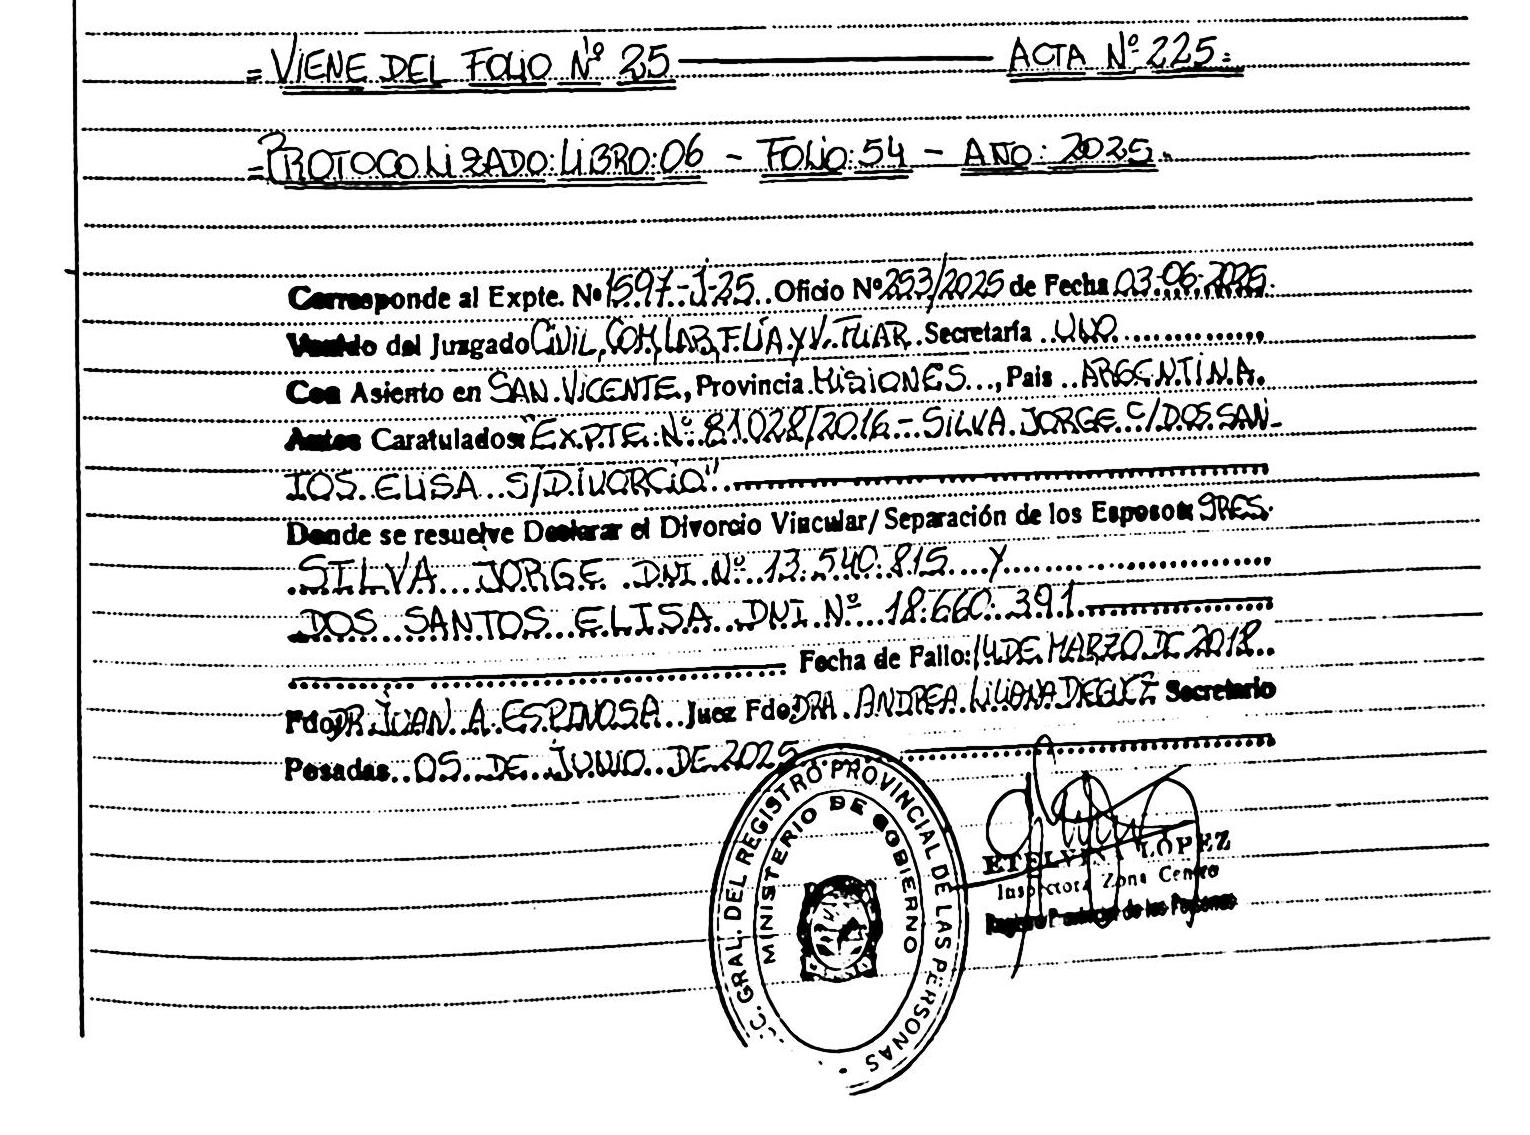 = VIENE DEL FOLIO Nº 25 ——— ACTA Nº 225 =
= PROTOCOLIZADO: LIBRO: 06 - FOLIO: 54 - AÑO: 2025.
Corresponde al Expte. Nº 1597-J-25. Oficio Nº 253/2025 de Fecha 03-06-2025.
Venido del Juzgado CIVIL, COM, LAB, FLÍA Y V. FLIAR. Secretaría UNO
Con Asiento en SAN VICENTE, Provincia MISIONES, Pais ARGENTINA.
Autos Caratulados: "EXPTE. Nº 81028/2016 - SILVA JORGE C/ DOS SAN-
TOS ELISA S/DIVORCIO"
Donde se resuelve Declarar el Divorcio Vincular/Separación de los Esposos: SRES.
SILVA JORGE DNI Nº 13.540.815 Y
DOS SANTOS ELISA DNI Nº 18.660.391
Fecha de Fallo: 14 DE MARZO DE 2018
Fdo. DR JUAN A. ESPINOSA Juez Fdo. DRA. ANDREA LILIANA Secretario
Posadas 05 DE JUNIO DE 2025
C. GRAL. DEL REGISTRO PROVINCIAL DE LAS PERSONAS
MINISTERIO DE GOBIERNO
ETELVINA LOPEZ
Inspectora Zona Centro
Registro Provincial de las Personas